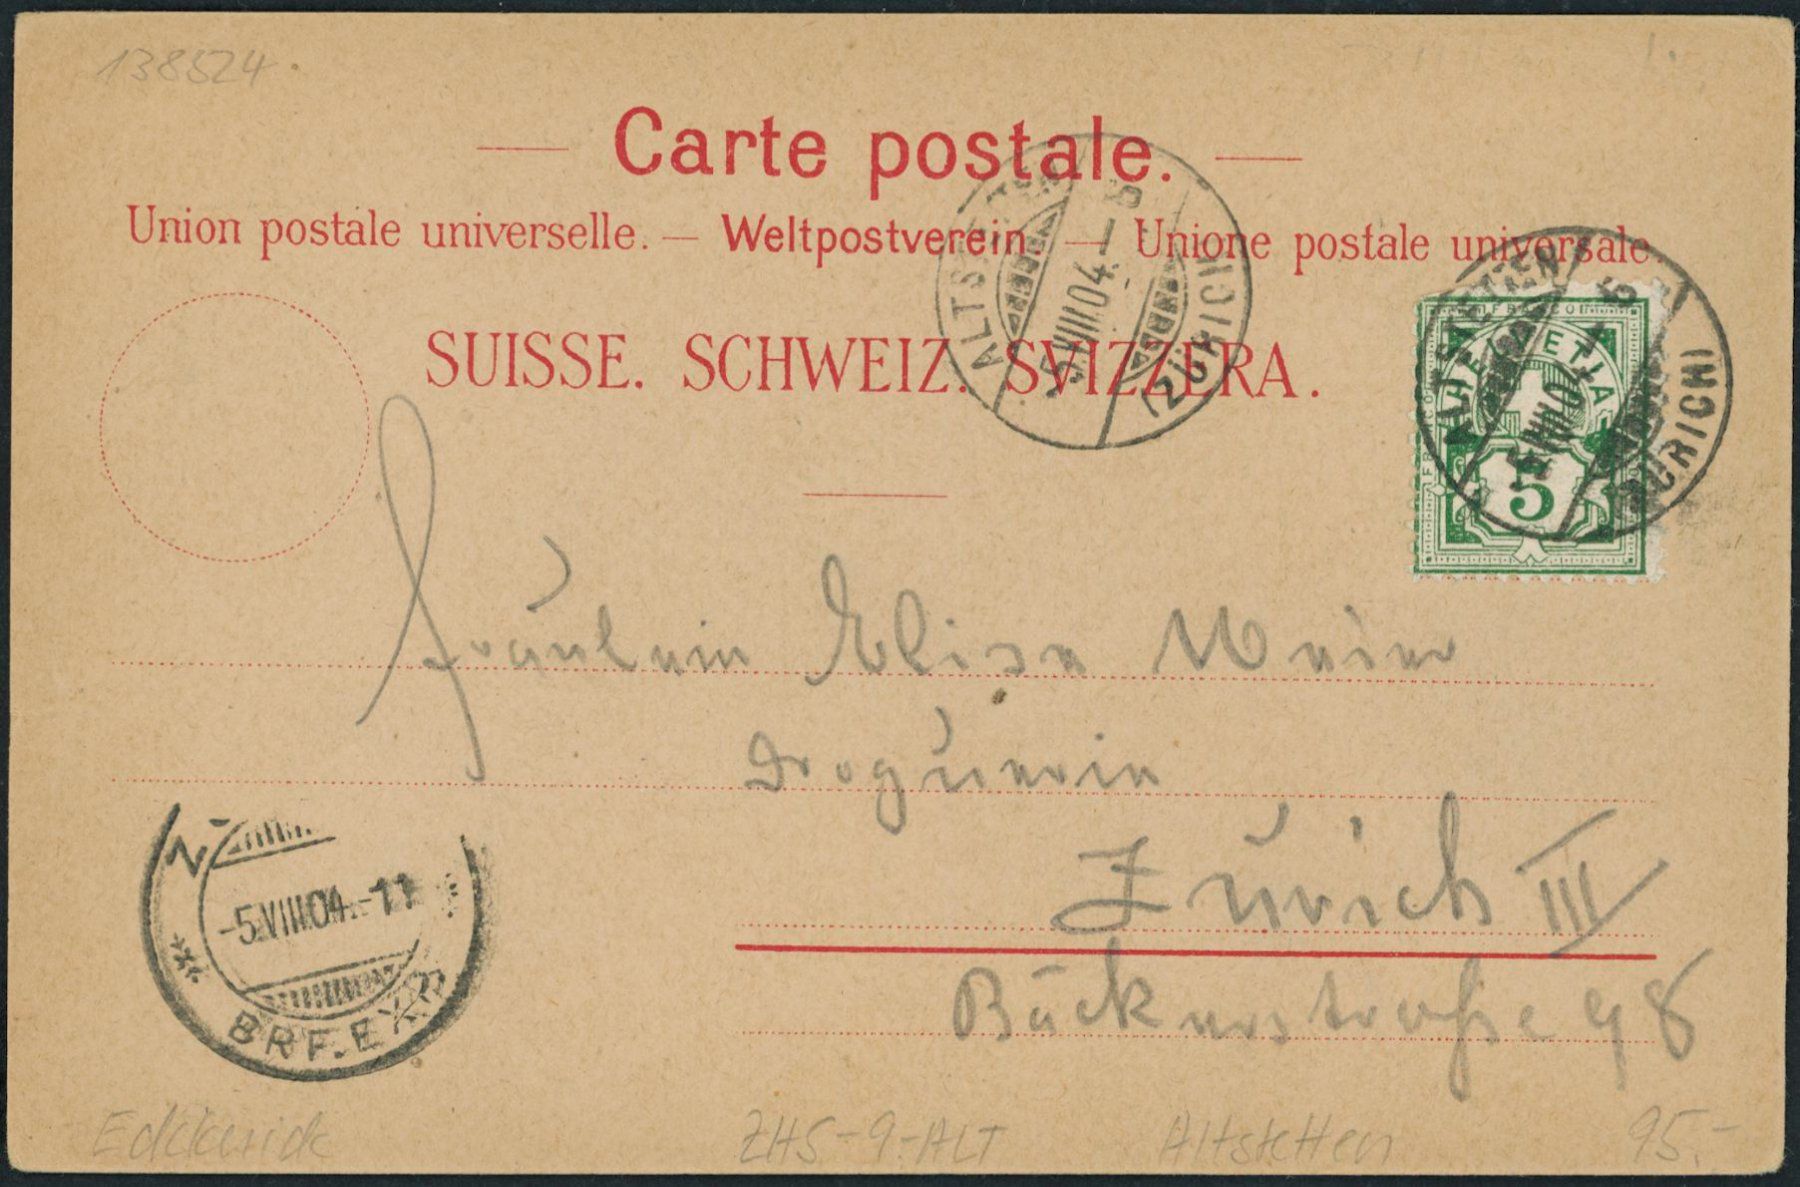 138524
Carte postale.
Union postale universelle. — Weltpostverein. — Unione postale universale.
SUISSE. SCHWEIZ. SVIZZERA.
ALTSTETTEN
5.VIII.04.–8
(ZÜRICH)
FRANCO
HELVETIA
5
ALTSTETTEN
5.VIII.04
(ZÜRICH)
Fräulein Elisa Meier
Droguerie
Zürich III
Bäckerstraße 98
-5.VIII.04.-11
BRF.EXP.
ZHS-9-ALT
Altstetten
95.-